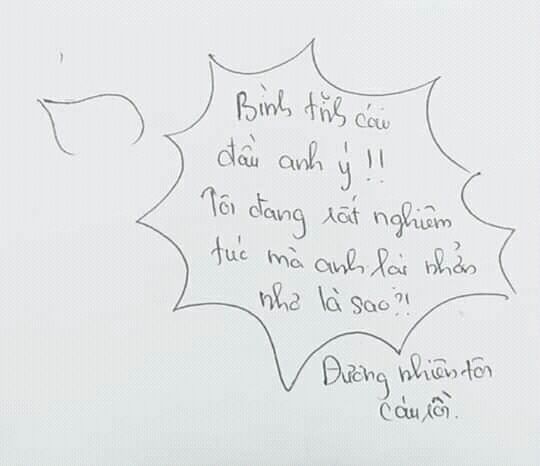 Bình tĩnh cái
đầu anh ý!!
Tôi đang rất nghiêm
túc mà anh lại nhăn
nhở là sao?!
Đương nhiên tôi
cáu rồi.